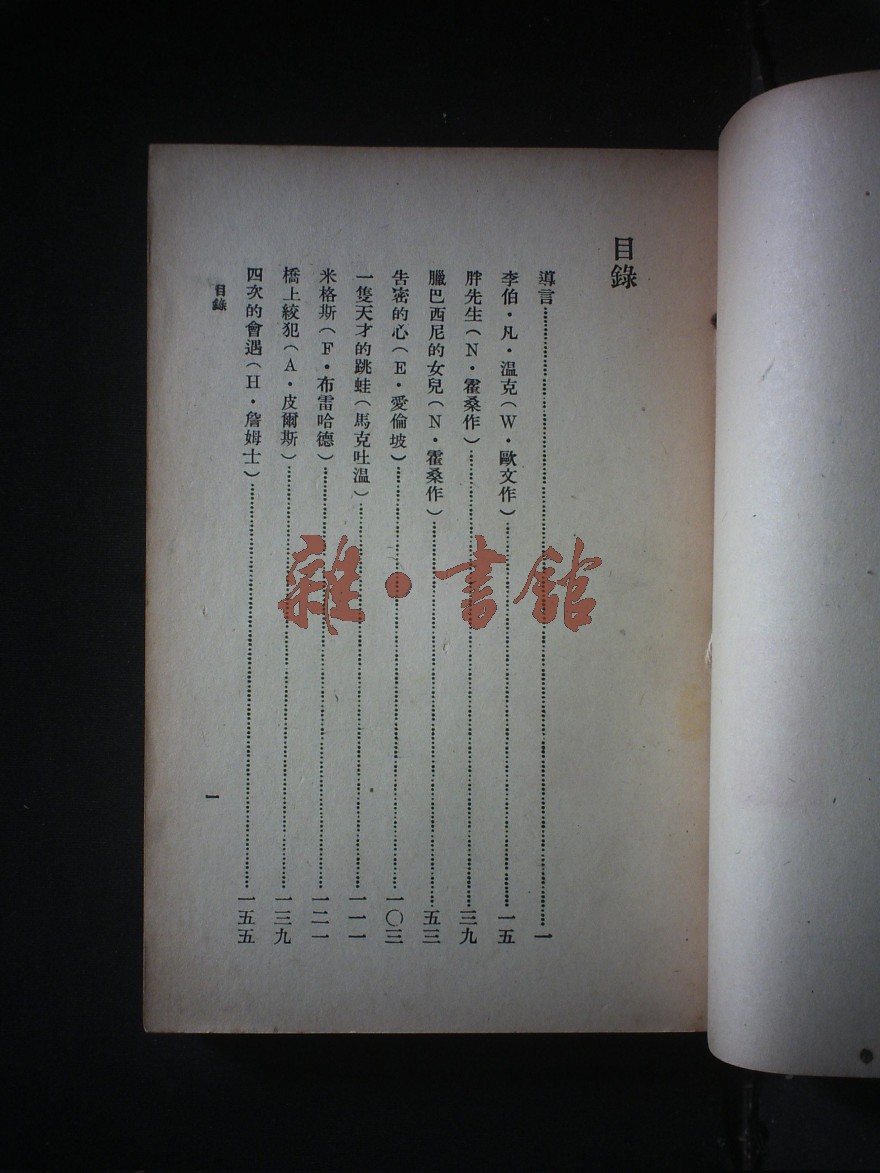 目錄
導言……一
李伯・凡・温克(W・歐文作)……一五
胖先生(N・霍桑作)……三九
臘巴西尼的女兒(N・霍桑作)……五三
告密的心(E・愛倫坡)……一〇三
一隻天才的跳蛙(馬克吐温)……一一一
米格斯(F・布雷哈德)……一二一
橋上絞犯(A・皮爾斯)……一三九
四次的會遇(H・詹姆士)……一五五
目錄
一
雜・書館